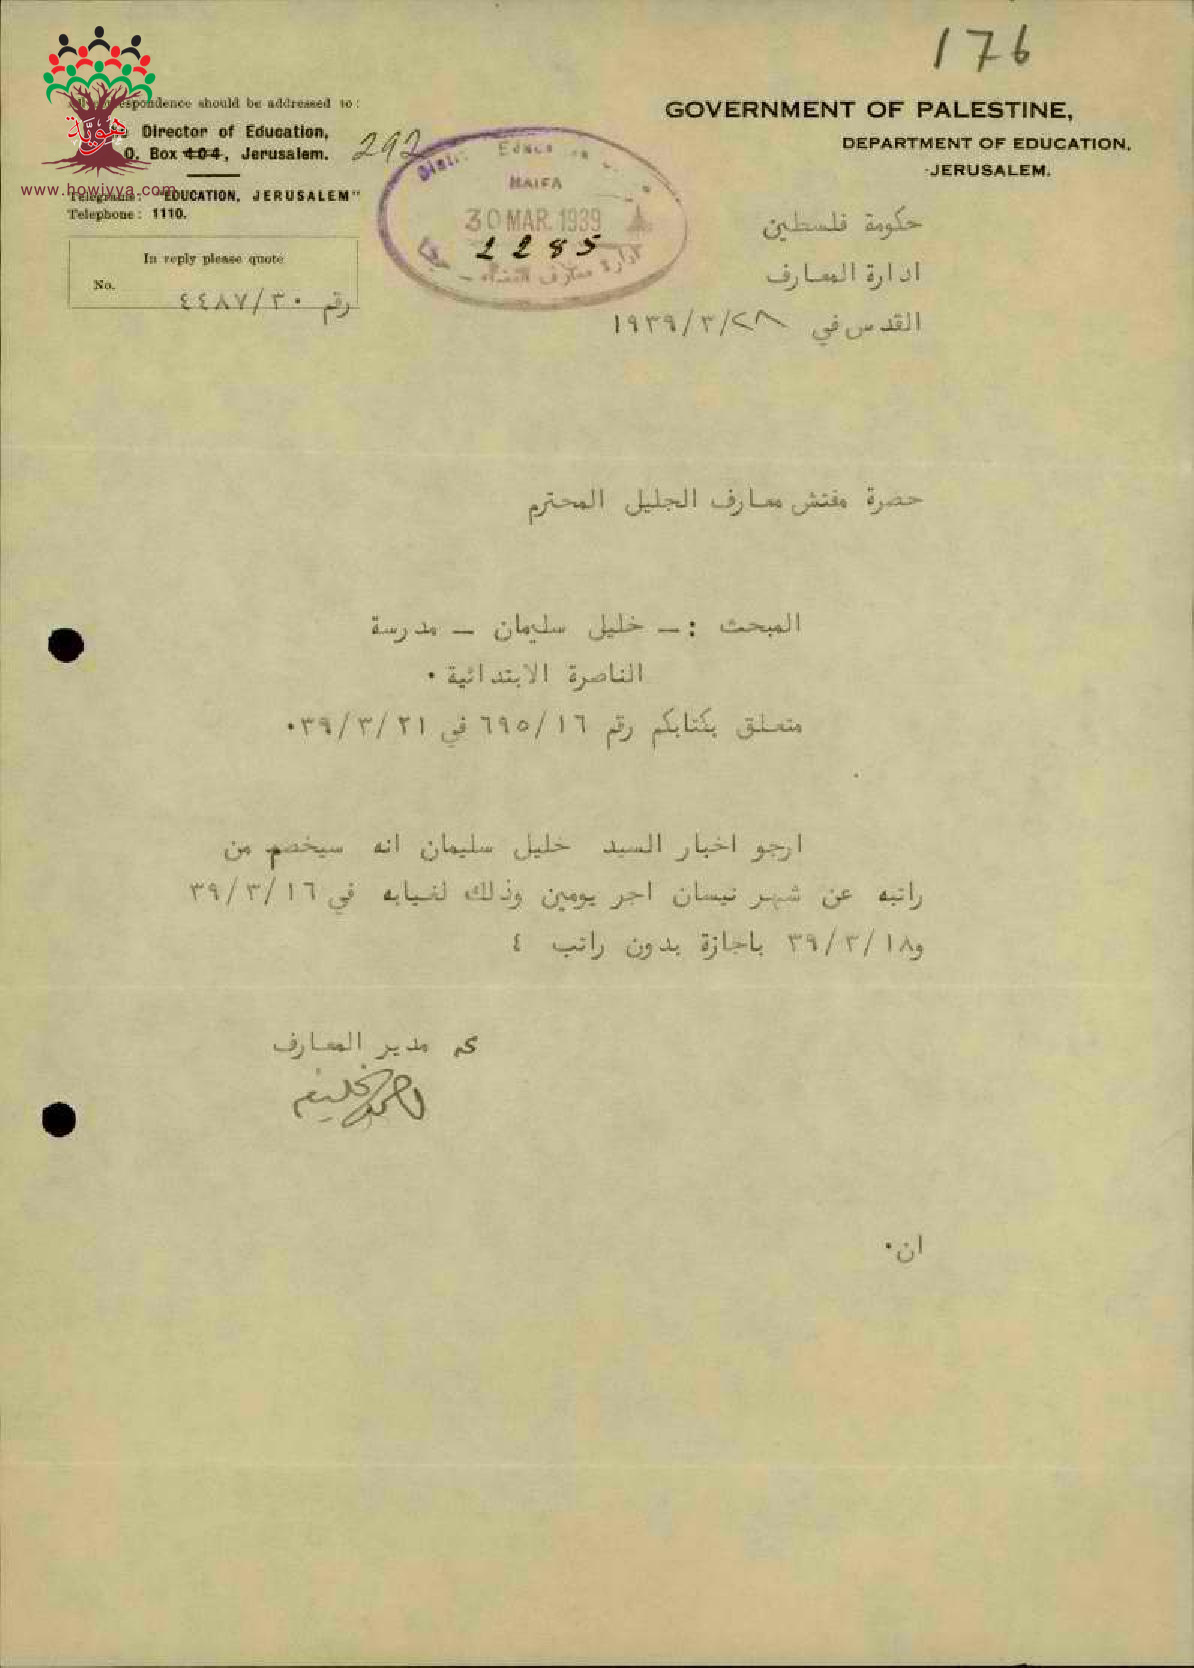 176
espondence should be addressed to:
Director of Education,
O. Box 404, Jerusalem.
292
هويّة
www.howiyya.com
Telegrams: "EDUCATION, JERUSALEM"
Telephone: 1110.
In reply please quote
No.
رقم ٤٤٨٧/٣٠
HAIFA
30 MAR. 1939
2285
ادارة معارف القضاء – حيفا
GOVERNMENT OF PALESTINE,
DEPARTMENT OF EDUCATION,
JERUSALEM.
حكومة فلسطين
ادارة المعارف
القدس في ١٩٣٩/٣/٢٨
حضرة مفتش معارف الجليل المحترم
المبحث :– خليل سليمان – مدرسة
الناصرة الابتدائية ٠
متعلق بكتابكم رقم ٦٩٥/١٦ في ٣٩/٣/٢١٠
ارجو اخبار السيد خليل سليمان انه سيخصم من
راتبه عن شهر نيسان اجر يومين وذلك لغيابه في ٣٩/٣/١٦
و٣٩/٣/١٨ باجازة بدون راتب ٤
مدير المعارف
احمد خليفه
ان٠